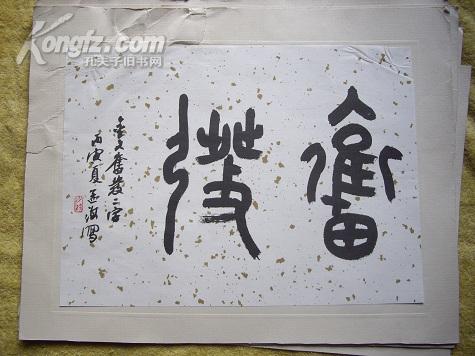 Kongfz.com
孔夫子旧书网
奮發
金文奮發二字
丙寅夏孟